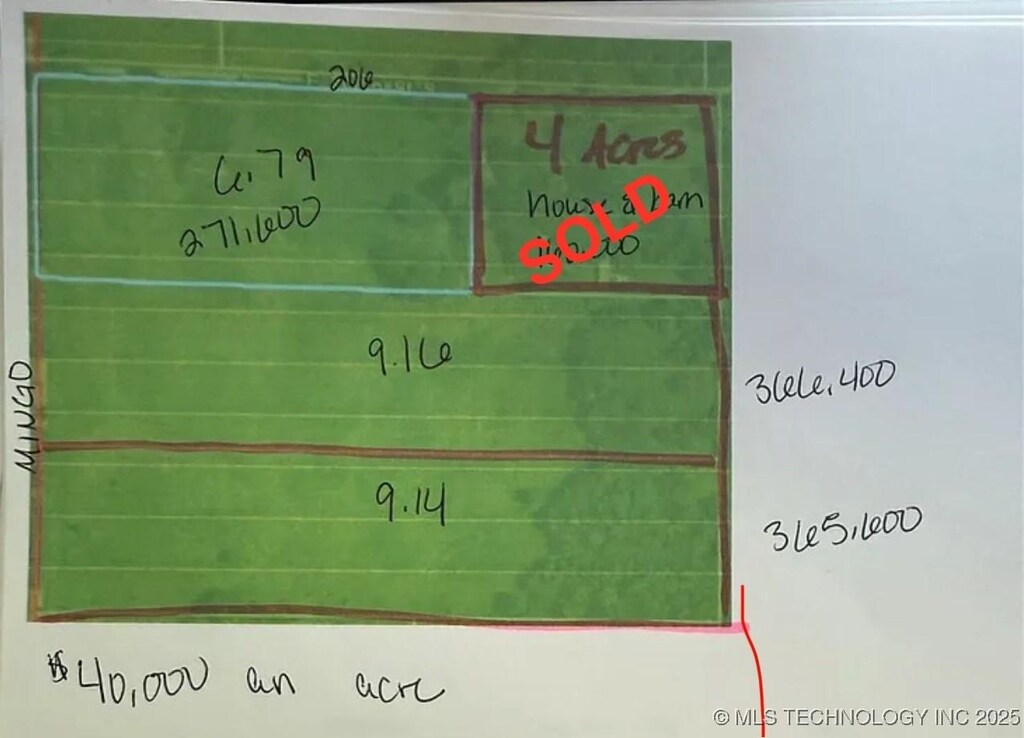 206
6.79
271,600
4 Acres
house & barn
SOLD
9.16
366,400
MINGO
9.14
365,600
$40,000 an acre
© MLS TECHNOLOGY INC 2025